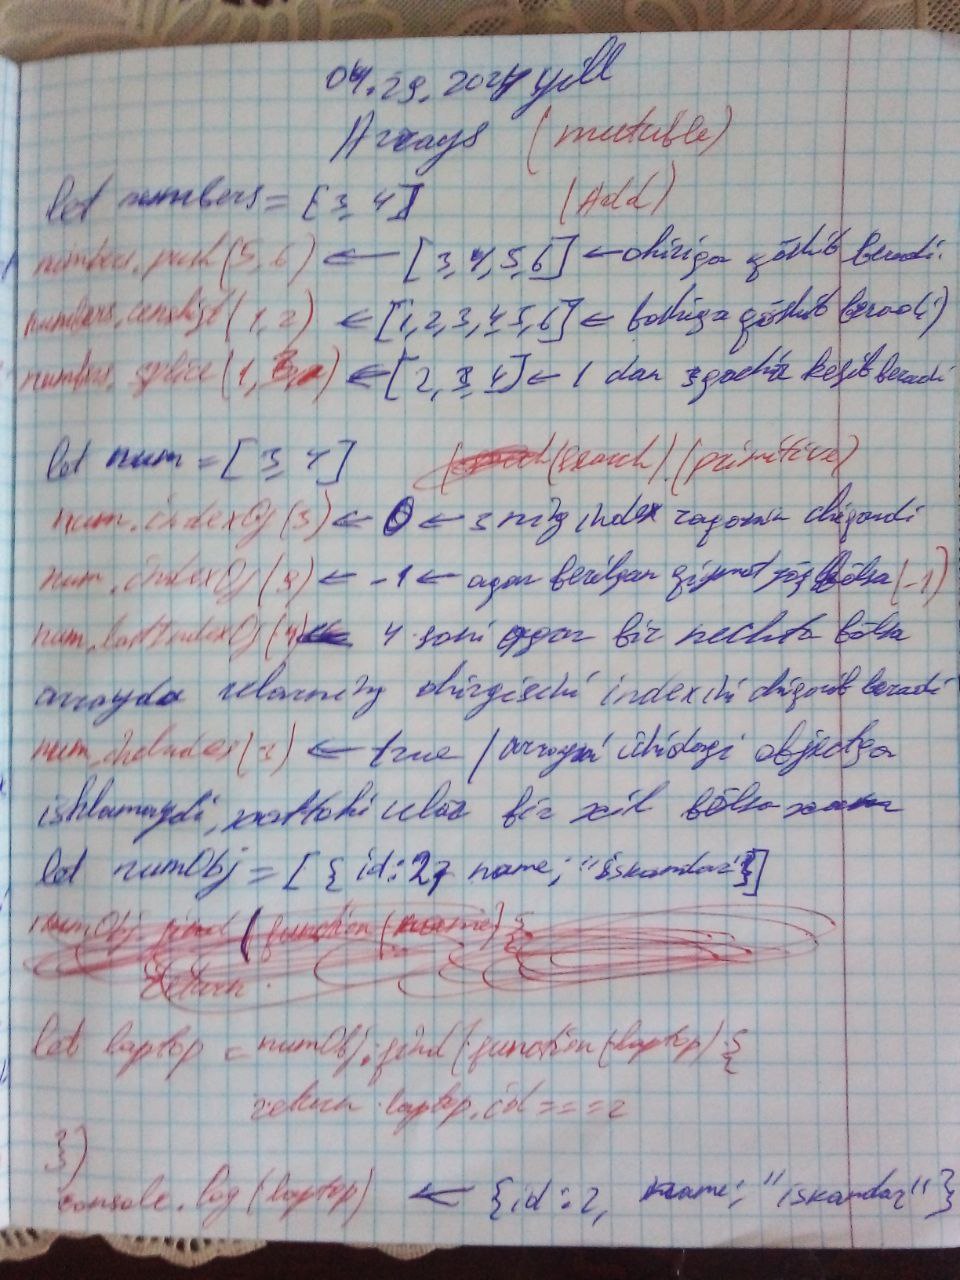 04.29.2024 yill
Arrays (mutable)
let numbers = [3, 4] (Add)
numbers.push(5, 6) ← [3,4,5,6] ← ohiriga qöshib beradi.
numbers.unshift(1, 2) ← [1,2,3,4,5,6] ← boshiga qöshib beradi)
numbers.splice(1, 3) ← [2, 3, 4] ← 1 dan 3gacha kesib beradi
let num = [3, 4] (search).(primitive)
num.indexOf(3) ← 0 ← 3 ning index raqamin chiqaradi
num.indexOf(9) ← -1 ← agar berilgan qiymat yöq bölsa (-1)
num.lastIndexOf(4) ← 4 soni agar bir nechta bölsa
arrayda ularning ohirgisini indexini chiqarib beradi
← true / arrayni ichidagi objectga
ishlamaydi, xattoki ular bir xil bölsa xam
let numObj = [{id:2, name; "iskandar"}]
numObj.find(function(name) {
return.
let laptop = numObj.find(function(laptop) {
return laptop.id === 2
})
console.log(laptop) ← {id:2, name; "iskandar"}